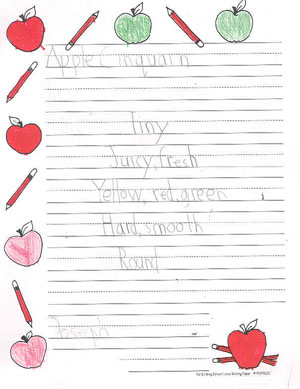 Apple Cinquain
Tiny
Juicy, fresh
Yellow, red, green
Hard, smooth
Round
Joseph